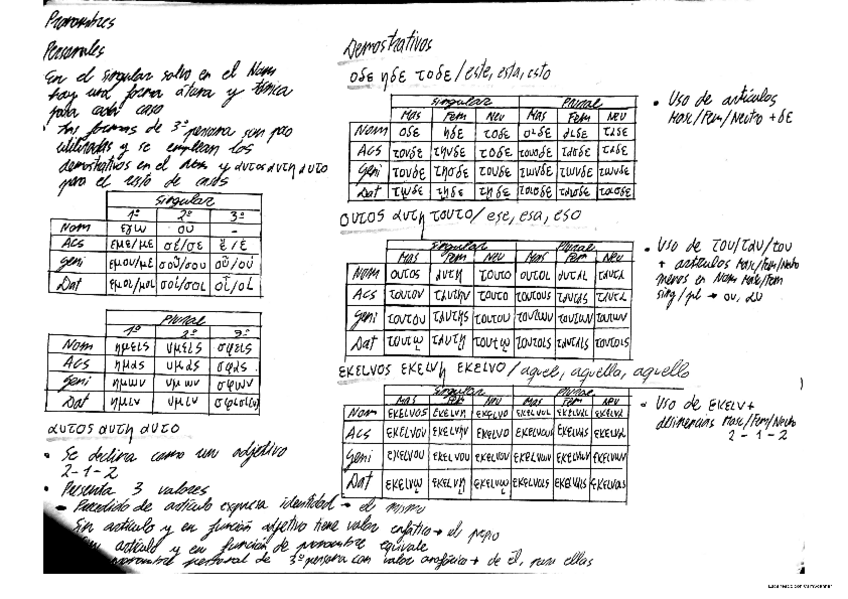 Pronombres
Personales
En el singular salvo en el Nom
hay una forma átona y tónica
para cada caso
• Las formas de 3ª persona son poco
utilizadas y se emplean los
demostrativos en el Nom y αυτος αυτη αυτο
para el resto de casos
Singular
1ª 2ª 3ª
Nom εγω συ -
Acs εμε/με σέ/σε ἕ/ἑ
Geni εμου/με σοῦ/σου οὗ/οὑ
Dat εμοι/μοι σοί/σοι οἷ/οἱ
Plural
1ª 2ª 3ª
Nom ημεις υμεις σφεις
Acs ημας υμας σφας
Geni ημων υμων σφων
Dat ημιν υμιν σφισι(ν)
αυτος αυτη αυτο
• Se declina como un adjetivo
2-1-2
• Presenta 3 valores
Precedido de artículo expresa identidad → el mismo
Sin artículo y en función adjetivo tiene valor enfático →
artículo y en función de pronombre equivale
personal de 3ª persona con valor anafórico → de él, para ellas
Demostrativos
οδε ηδε τοδε / este, esta, esto
Singular Plural
Mas Fem Neu Mas Fem Neu
Nom οδε ηδε τοδε οιδε αιδε ταδε
Acs τονδε τηνδε τοδε τουσδε τασδε ταδε
Geni τουδε τησδε τουδε τωνδε τωνδε τωνδε
Dat τῳδε τῃδε τῳδε τοισδε ταισδε τοισδε
• Uso de artículos
Masc/Fem/Neutro + δε
ουτος αυτη τουτο / ese, esa, eso
Singular Plural
Mas Fem Neu Mas Fem Neu
Nom ουτος αυτη τουτο ουτοι αυται ταυτα
Acs τουτον ταυτην τουτο τουτους ταυτας ταυτα
Geni τουτου ταυτης τουτου τουτων τουτων τουτων
Dat τουτῳ ταυτῃ τουτῳ τουτοις ταυταις τουτοις
• Uso de του/ταυ/του
+ artículos Masc/Fem/Neutro
menos en Nom Masc/Fem
sing/pl → ου, αυ
εκεινος εκεινη εκεινο / aquel, aquella, aquello
Singular Plural
Mas Fem Neu Mas Fem Neu
Nom εκεινος εκεινη εκεινο εκεινοι εκειναι εκεινα
Acs εκεινον εκεινην εκεινο εκεινους εκεινας εκεινα
Geni εκεινου εκεινου εκεινου εκεινων εκεινων εκεινων
Dat εκεινῳ εκεινῃ εκεινῳ εκεινοις εκειναις εκεινοις
• Uso de εκειν +
desinencias Masc/Fem/Neutro
2-1-2